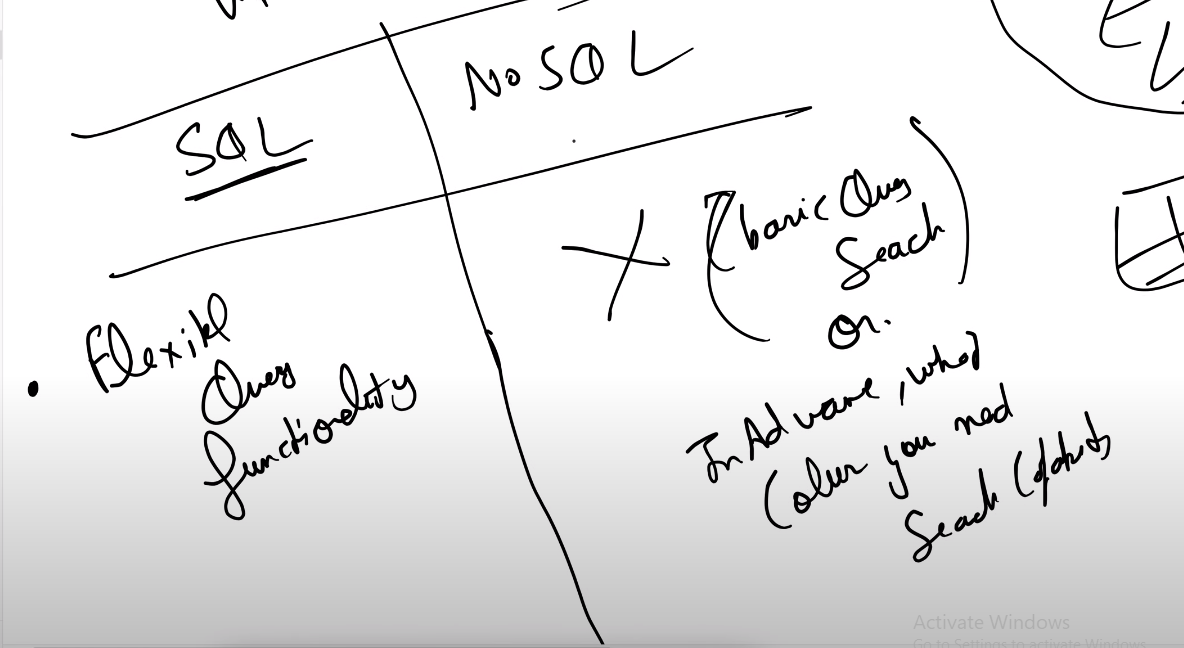 SQL
NoSQL
Flexibl
Query
functionality
(basic Query
Seach
or.
In Advance, what
Colum you need
Seach (
Activate Windows
Go to Settings to activate Windows.